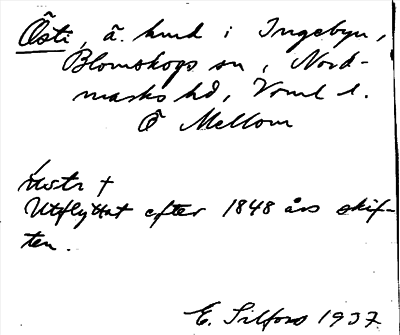 Östi, ä. hmd i Ingebyn,
Blomskogs sn, Nord-
marks hd, Vrml l.
Ö Mellom
†
Utflyttat efter 1848 års skif-
ten.
E. Silfors 1937